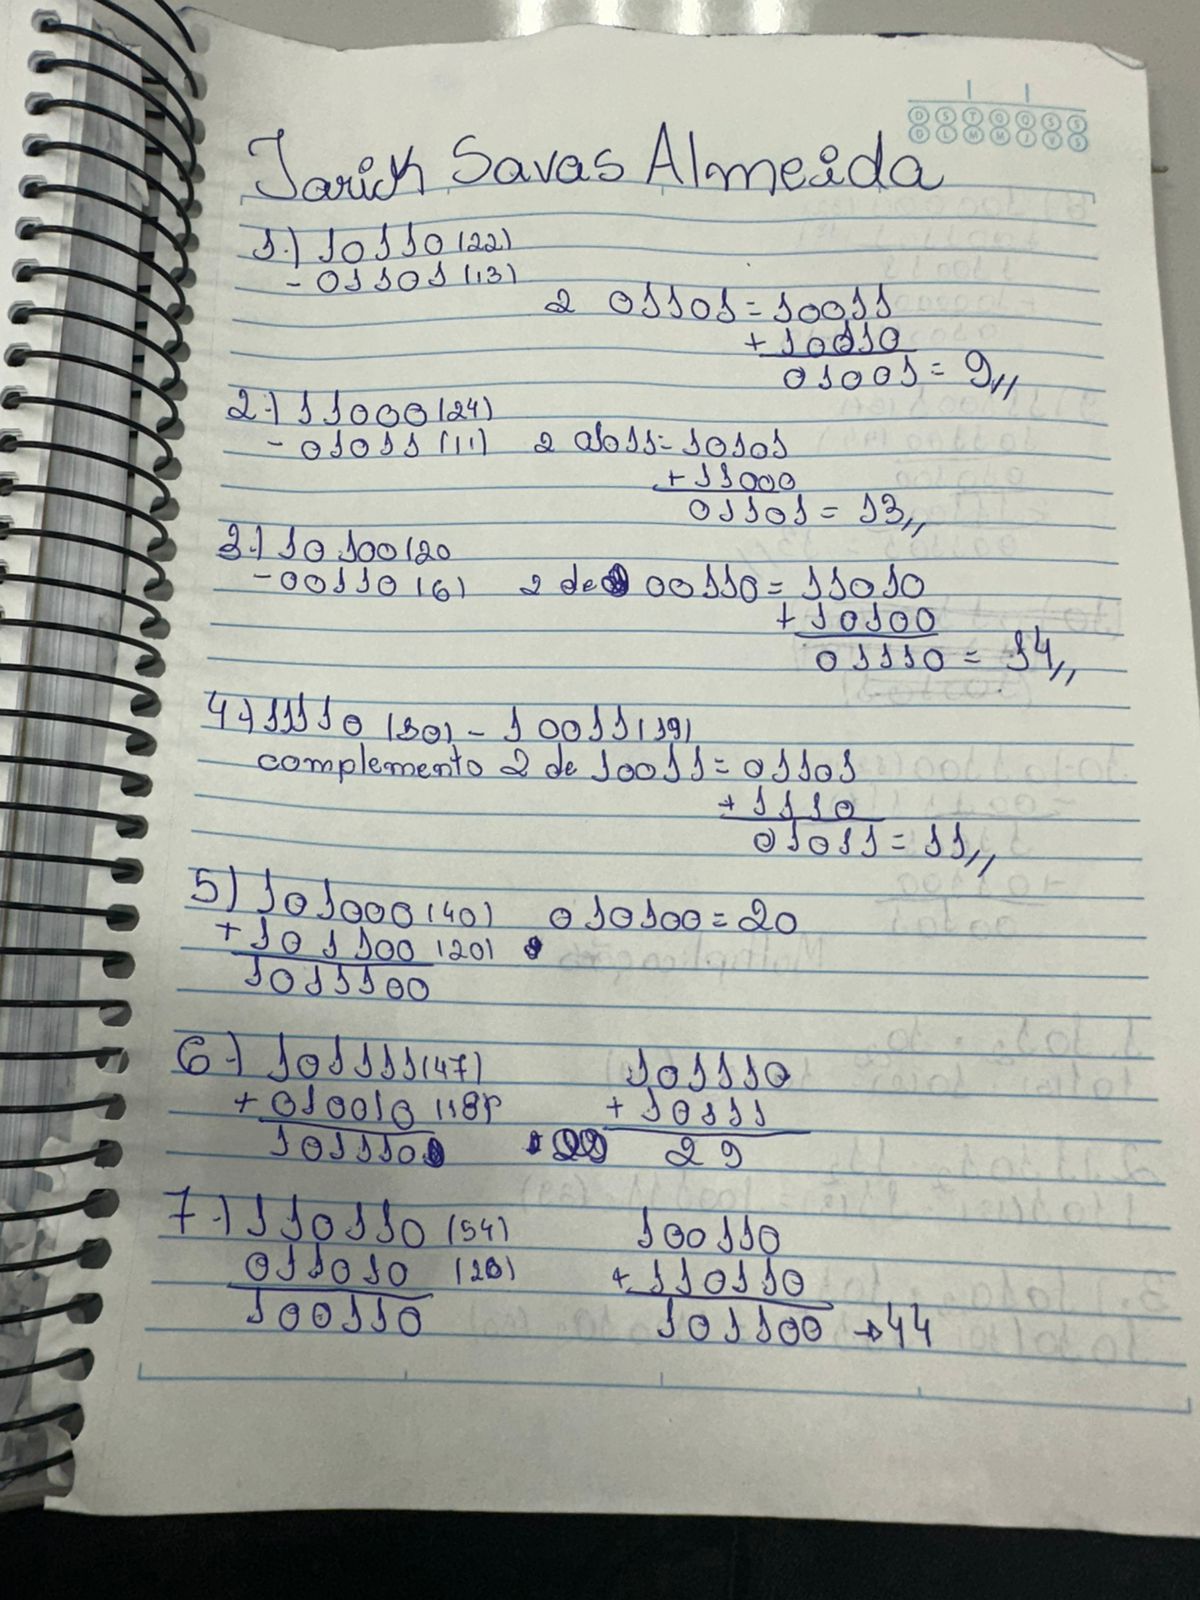 D S T Q Q S S
D L M M J V S
Jarich Savas Almeida
1.) 10110 (22)
- 01101 (13)
2 01101 = 10011
+ 10010
01001 = 9,,
2.) 11000 (24)
- 01011 (11) 2 01011 = 10101
+ 11000
01101 = 13,,
3.) 10100 (20
- 00110 (6) 2 de 00110 = 11010
+ 10100
01110 = 14,,
4.) 11110 (30) - 10011 (19)
complemento 2 de 10011 = 01101
+ 1110
01011 = 11,,
5) 101000 (40) 010100 = 20
+ 101100 (20)
1011100
6-) 101111 (47) 101110
+ 010010 (18) + 10111
101110 29
7-) 110110 (54) 100110
011010 (26) + 110110
100110 101100 → 44